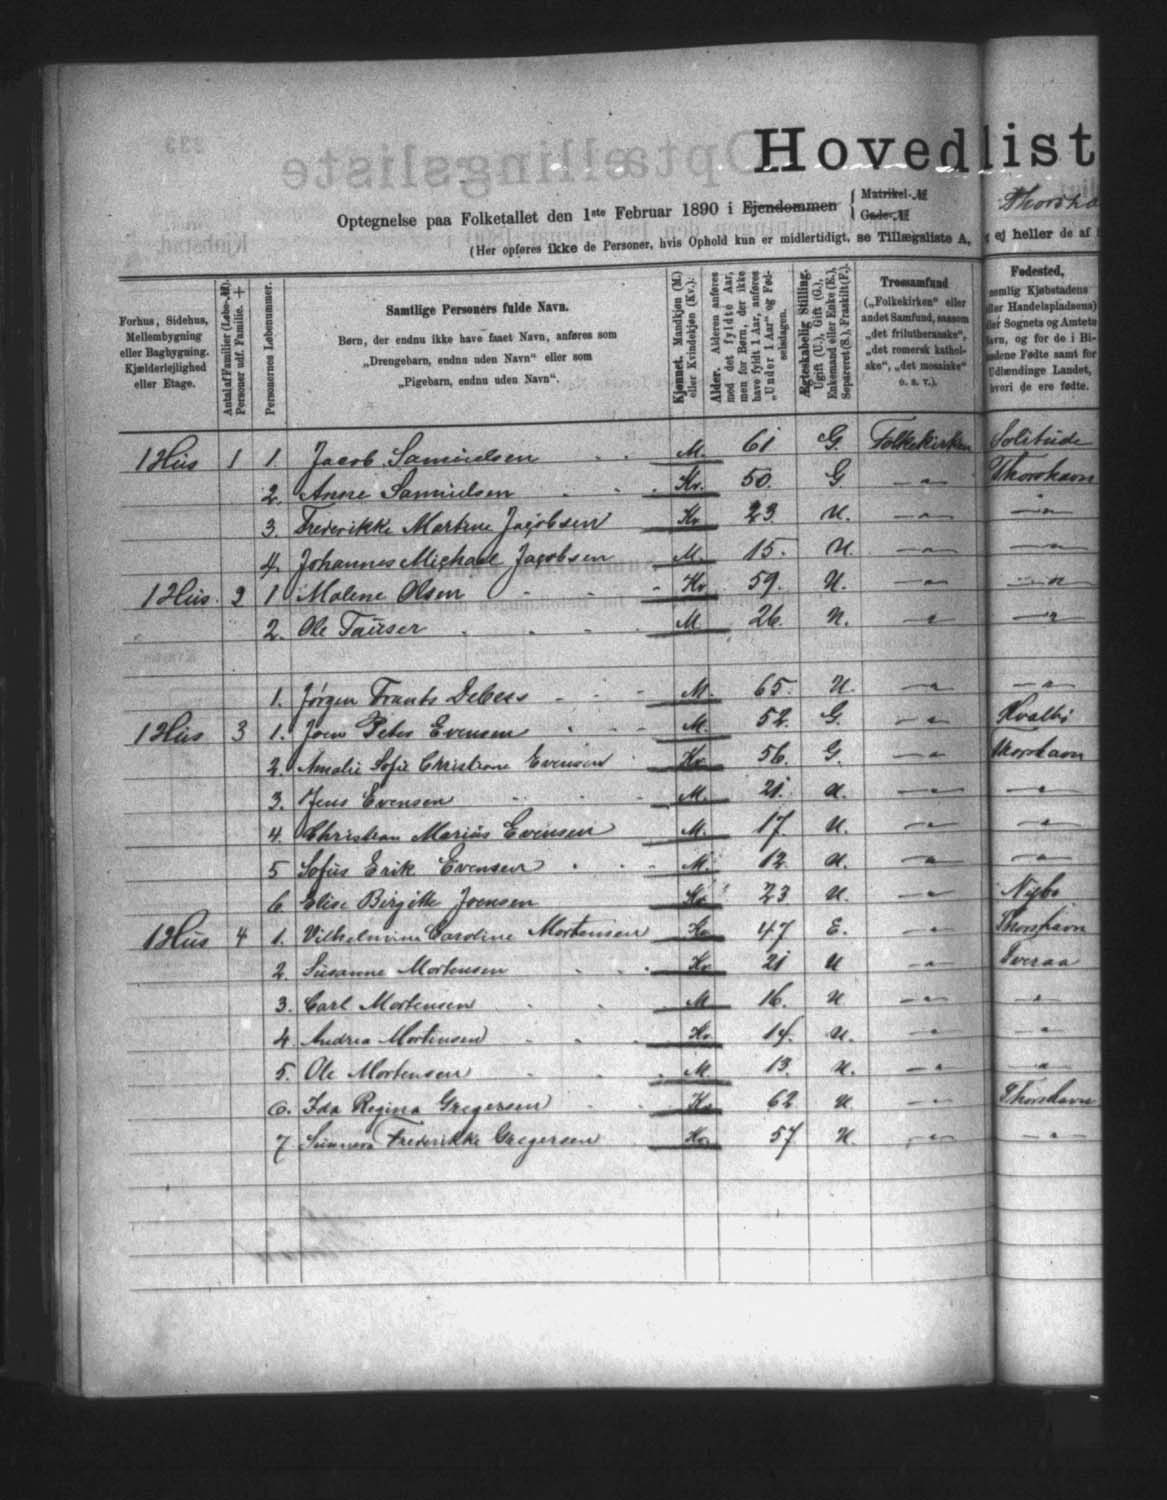 Hovedlist
Optegnelse paa Folketallet den 1ste Februar 1890 i Ejendommen { Matrikel-№ Gade-№ Thorsha
(Her opføres ikke de Personer, hvis Ophold kun er midlertidigt, se Tillægsliste A, ej heller de af
Forhus, Sidehus, Mellembygning eller Bagbygning. Kjælderlejlighed eller Etage.
Antal af Familier (Løbe-№). Personer udf. Familie. +
Personernes Løbenummer.
Samtlige Personers fulde Navn.
Børn, der endnu ikke have faaet Navn, anføres som
„Drengebarn, endnu uden Navn“ eller som
„Pigebarn, endnu uden Navn“.
Kjønnet. Mandkjøn (M.) eller Kvindekjøn (Kv.).
Alder. Alderen anføres med det fyldte Aar, men for Børn, der ikke have fyldt 1 Aar, anføres „Under 1 Aar“ og Fødselsdagen.
Ægteskabelig Stilling. Ugift (U.), Gift (G.), Enkemand eller Enke (E.), Separeret (S.), Fraskilt (F.).
Trossamfund („Folkekirken“ eller andet Samfund, saasom „det frilutheranske“, „det romersk katholske“, „det mosaiske“ o. s. v.).
Fødested,
nemlig Kjøbstadens
ller Handelspladsens)
ler Sognets og Amtets
avn, og for de i Bi-
ndene Fødte samt for
Udlændinge Landet,
hvori de ere fødte.
1 Hus 1 1. Jacob Samuelsen M. 61 G. Folkekirken Solitude
2. Anne Samuelsen Kv. 50. G. — " — Thorshavn
3. Frederikke Martine Jacobsen Kv. 23. U. — " — — " —
4. Johannes Michael Jacobsen M. 15. U. — " — — " —
1 Hus. 2 1 Malene Olsen Kv. 59. U. — " — — " —
2. Ole Tausen M. 26. U. — " — — " —
1. Jørgen Frants Debess M. 65. U. — " — — " —
1 Hus 3 1. Joen Peter Evensen M. 52. G. — " — Kvalbø
2. Amalie Sofie Christiane Evensen Kv. 56. G. — " — Thorshavn
3. Jens Evensen M. 21. U. — " — — " —
4. Christian Marius Evensen M. 17. U. — " — — " —
5 Sofus Erik Evensen M. 12. U. — " — — " —
6. Elise Birgitte Joensen Kv. 23 U. — " —
1 Hus 4 1. Vilhelmine Caroline Mortensen Kv. 47 E. — " — Thorshavn
2. Susanne Mortensen Kv. 21 U — " — Tveraa
3. Carl Mortensen M 16. U — " — — " —
4. Andrea Mortensen Kv. 14. U. — " — — " —
5. Ole Mortensen M 13. U. — " — — " —
6. Ida Regina Gregersen Kv. 62 U. — " — Thorshavn
7 Sunneva Frederikke Gregersen Kv. 57 U. — " — — " —